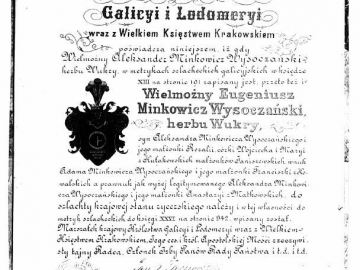 Galicyi i Lodomeryi
wraz z Wielkiem Księstwem Krakowskiem
poświadcza niniejszem, iż gdy
Wielmożny Aleksander Minkowicz Wysoczański
herbu Wukry, w metrykach szlacheckich galicyjskich w księdze
XIII na stronie 101 zapisany jest, przeto też i
Wielmożny Eugeniusz
Minkowicz Wysoczański,
herbu Wukry,
syn Aleksandra Minkowicza Wysoczańskiego i
jego małżonki Rozalii córki Wojciecha i Maryi
z małżonków Janiszewskich, wnuk
Adama Minkowicza Wysoczańskiego i jego małżonki Franciszki z
walskich, a prawnuk jak wyżej legitymowanego Aleksandra Minkowi
cza Wysoczańskiego i jego małżonki Anastazyi z Matkowskich, do
szlachty krajowej stanu rycerskiego należy i w tej własności do
metryk szlacheckich do księgi XXVI na stronie 942 wpisany został.
Marszałek krajowy Królestwa Galicyi i Lodomeryi wraz z Wielkiem
Księstwem Krakowskiem, Jego ces. i król. Apostolskiej Mości rzeczywi
sty tajny Radca, Członek Izby Panów Rady Państwa i t.d. i t.d.